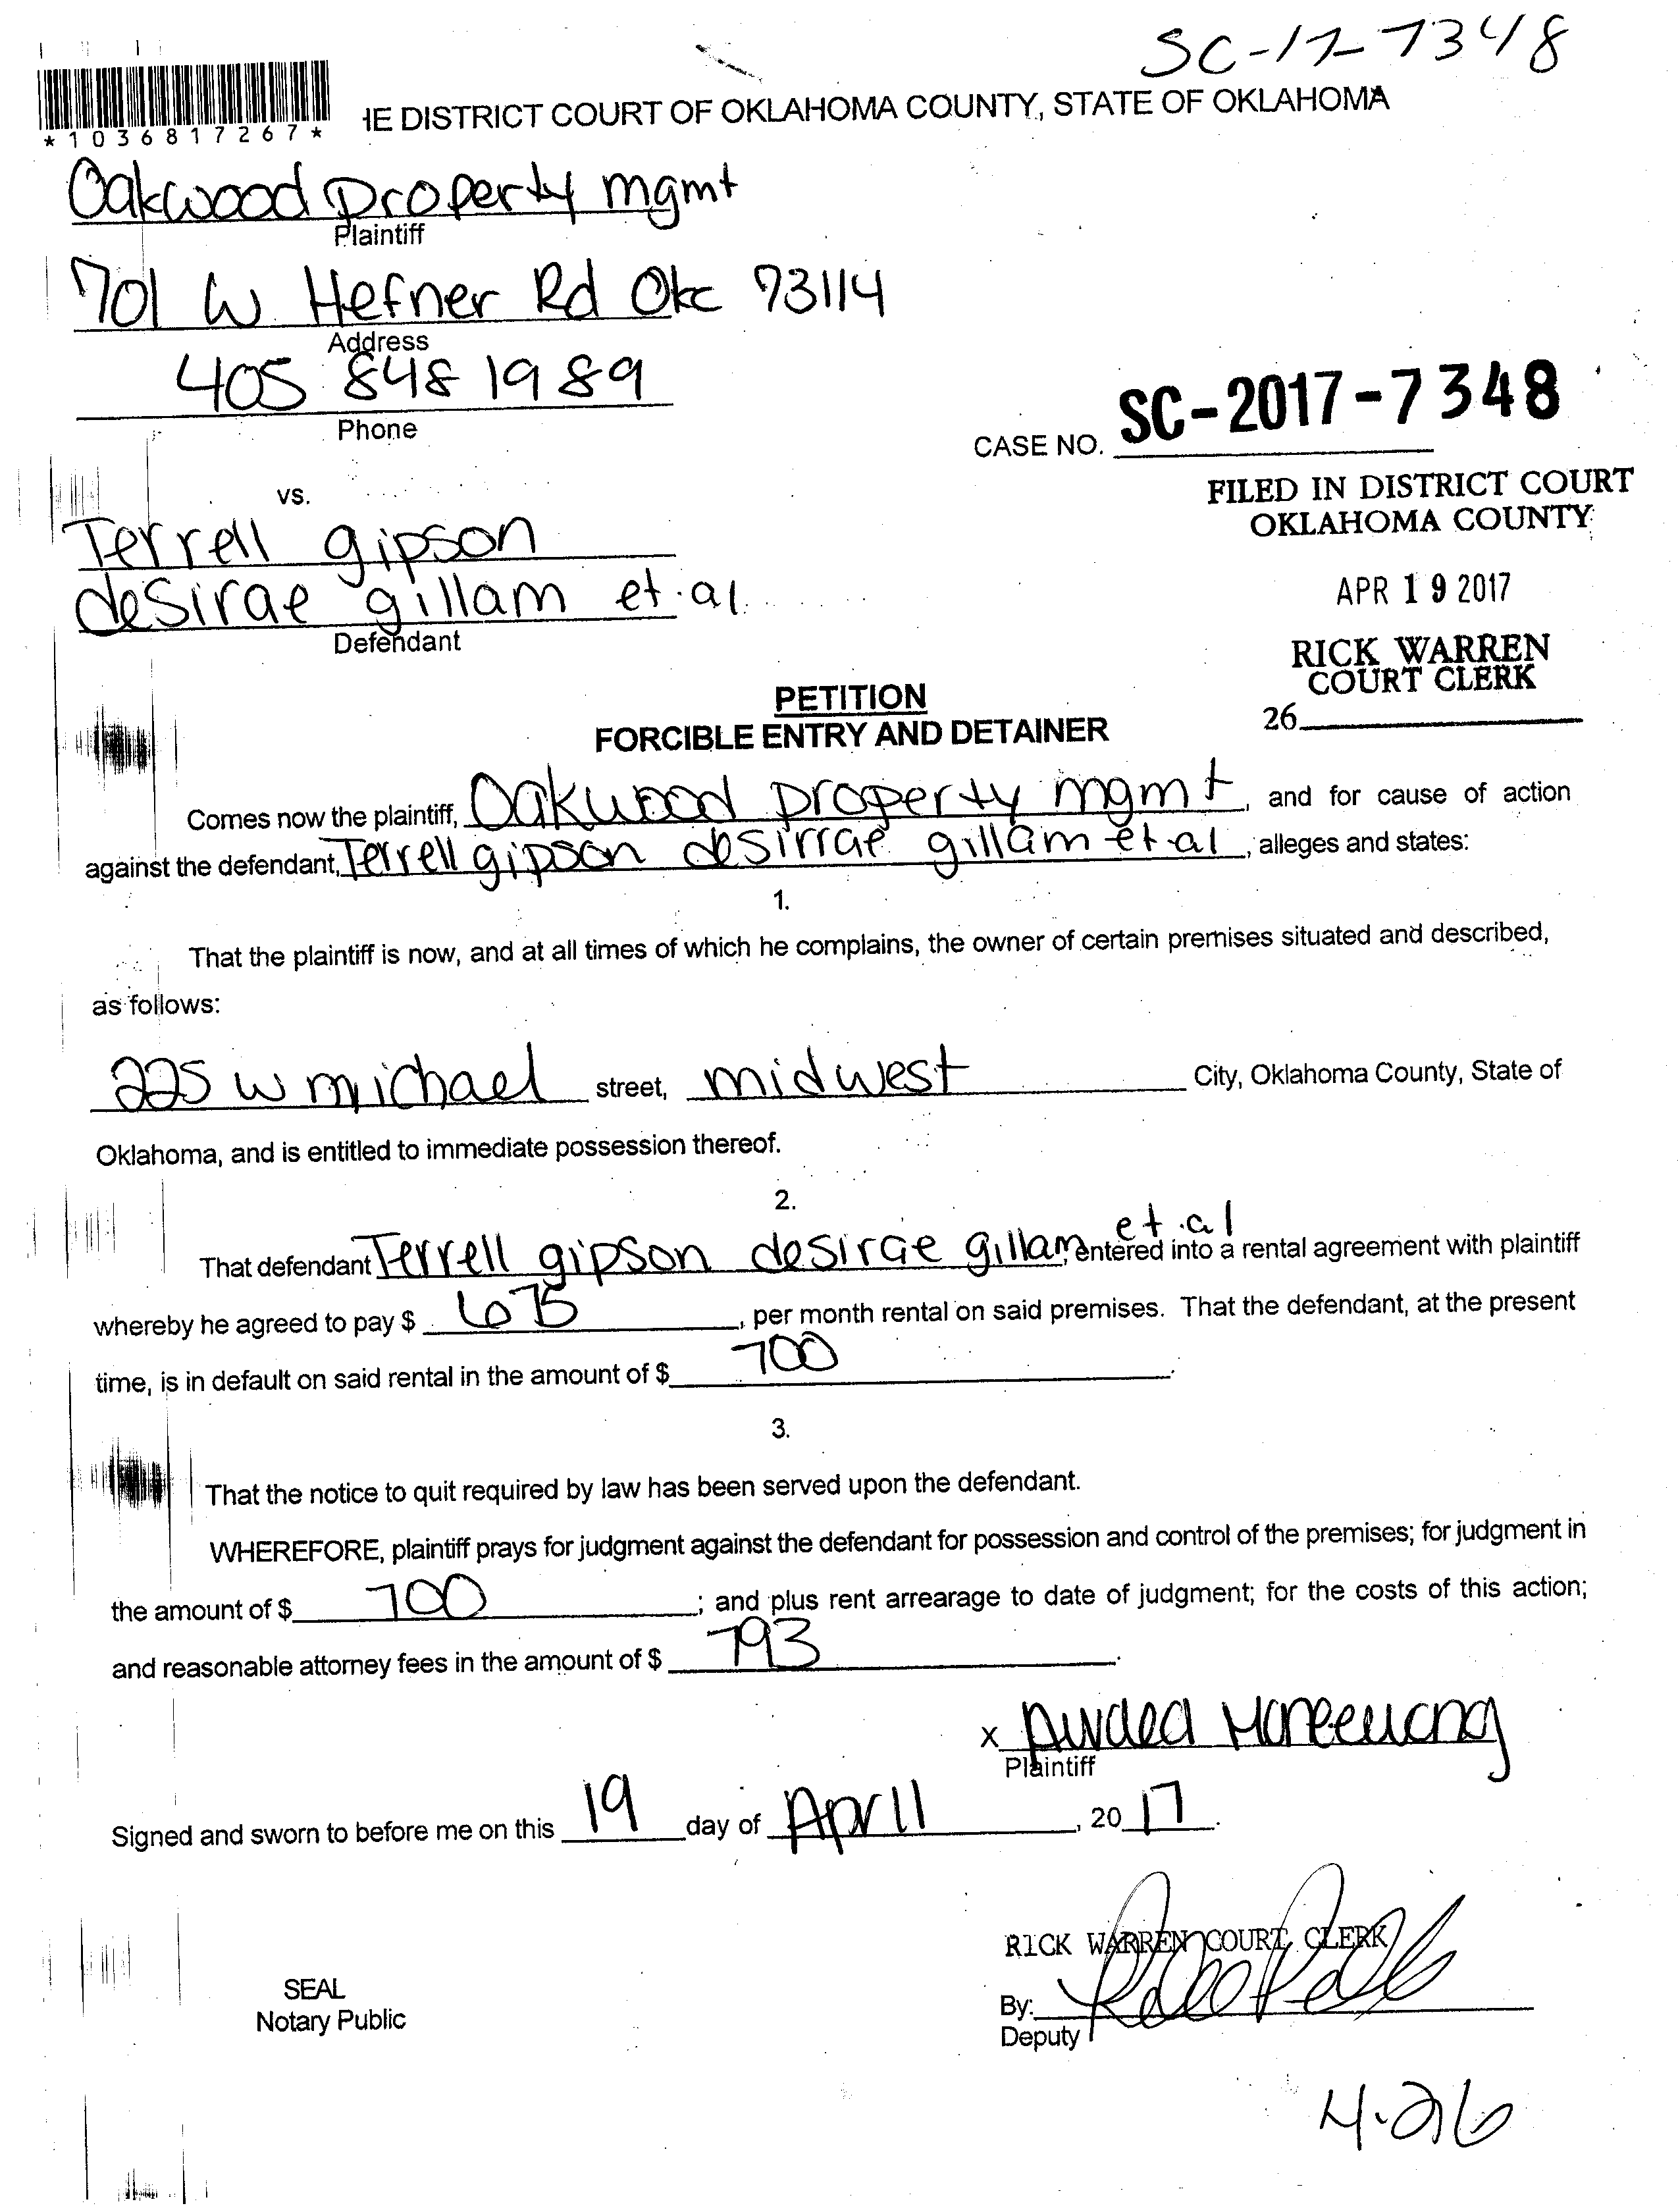 SC-17-7348
*1036817267*
HE DISTRICT COURT OF OKLAHOMA COUNTY, STATE OF OKLAHOMA
Oakwood property mgmt
Plaintiff
701 W Hefner Rd Okc 73114
Address
405 848 1989
Phone
CASE NO. SC-2017-7348
vs.
FILED IN DISTRICT COURT
OKLAHOMA COUNTY
Terrell gipson
desirae gillam et.al.
Defendant
APR 19 2017
RICK WARREN
COURT CLERK
26
PETITION
FORCIBLE ENTRY AND DETAINER
Comes now the plaintiff, Oakwood property mgmt, and for cause of action
against the defendant, Terrell gipson desirrae gillam et.al, alleges and states:
1.
That the plaintiff is now, and at all times of which he complains, the owner of certain premises situated and described,
as follows:
225 w michael street, midwest City, Oklahoma County, State of
Oklahoma, and is entitled to immediate possession thereof.
2.
That defendant Terrell gipson desirae gillam et.al, entered into a rental agreement with plaintiff
whereby he agreed to pay $ 675, per month rental on said premises. That the defendant, at the present
time, is in default on said rental in the amount of $ 700.
3.
That the notice to quit required by law has been served upon the defendant.
WHEREFORE, plaintiff prays for judgment against the defendant for possession and control of the premises; for judgment in
the amount of $ 700; and plus rent arrearage to date of judgment; for the costs of this action;
and reasonable attorney fees in the amount of $ 793.
X
Plaintiff
Signed and sworn to before me on this 19 day of April, 2017.
RICK WARREN COURT CLERK
SEAL
Notary Public
By:
Deputy
4-26